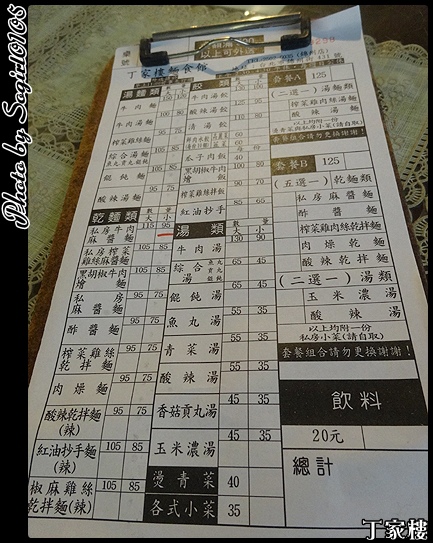 Photo by Sagit10105
以上可外送
丁家樓麵食館
湯麵類
牛肉麵
牛肉湯麵
榨菜雞絲麵
綜合湯麵
餛飩麵
酸辣湯麵
乾麵類
數 量
大 小
私房牛肉麻醬麵 115 95
私房榨菜雞絲麻醬麵 105 85
黑胡椒牛肉燴麵 105 85
私房麻醬麵 95 75
酢醬麵 95 75
榨菜雞絲乾拌麵 95 75
肉燥麵 95 75
酸辣乾拌麵(辣) 95 75
紅油抄手麵(辣) 105 85
椒麻雞絲乾拌麵(辣) 105 85
牛肉湯餃
酸辣湯餃
清湯餃
瓜子肉飯
黑胡椒牛肉燴飯
榨菜雞絲拌飯
紅油抄手
湯類
數 量
大 小
牛肉湯 130 90
綜合湯
餛飩湯
魚丸湯 55 35
青菜湯 55 35
酸辣湯 45 35
香菇貢丸湯 45 35
玉米濃湯 45 35
燙青菜 40
各式小菜 35
套餐A 125
(二選一)湯麵類
榨菜雞肉絲湯麵
酸辣湯麵
以上均附一份
套餐組合請勿更換謝謝!
套餐B 125
(五選一)乾麵類
私房麻醬麵
酢醬麵
榨菜雞肉絲乾拌麵
肉燥乾麵
酸辣乾拌麵
(二選一)湯類
玉米濃湯
酸辣湯
以上均附一份
私房小菜(請自取)
套餐組合請勿更換謝謝!
飲料
20元
總計
丁家樓